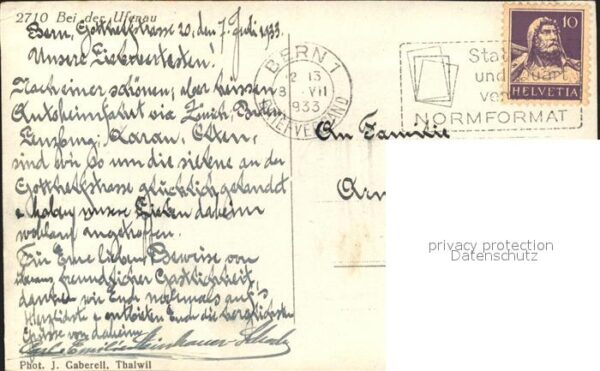 2710 Bei der Ufenau
Bern, Gotthelfstrasse 20, den 7. Juli 1933.
Unsere Liebwertesten!
Nach einer schönen, aber heissen
Autoheimfahrt via Zürich, Baden
Lenzburg, Aarau, Olten,
sind wir so um die siebene an der
Gotthelfstrasse glücklich gelandet
& haben unsere Lieben daheim
wohlauf angetroffen.
Für Eure lieben Beweise von
überaus freundlicher Gastlichkeit,
danken wir Euch nochmals auf's
Herzlichste & entbieten Euch die herzlichsten
Grüsse von daheim
Carl & Emilie Steinhauer
Phot. J. Gaberell, Thalwil
BERN 1
BRIEFVERSAND
8 VII
1933
Sta
und Quart
ver
NORMFORMAT
10
HELVETIA
An Familie
privacy protection
Datenschutz